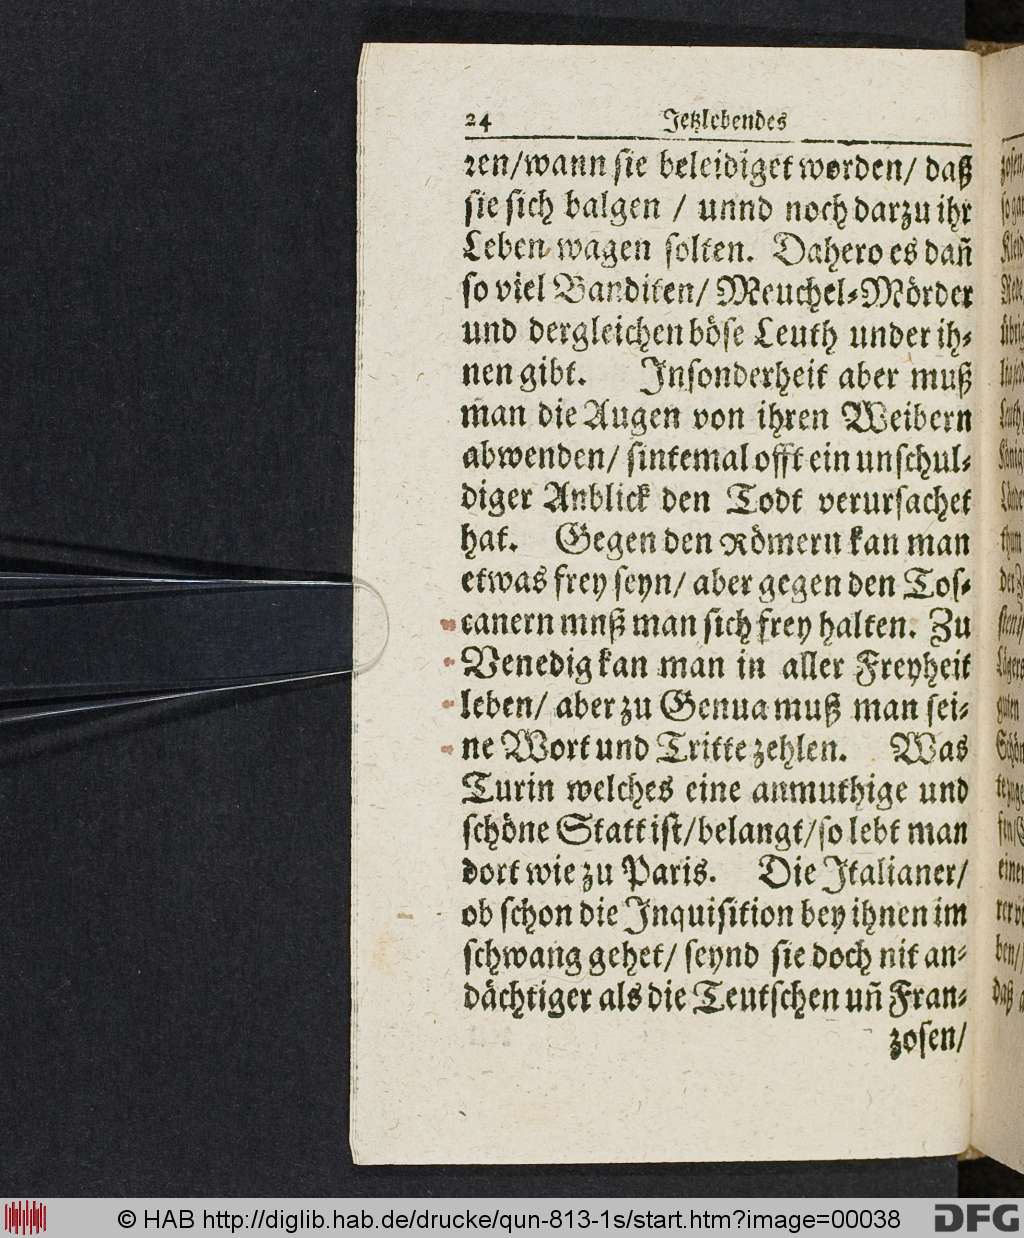 24 Jetzlebendes
ren/wann sie beleidiget worden/ daß
sie sich balgen / unnd noch darzu ihr
Leben wagen solten. Dahero es dañ
so viel Banditen/ Meuchel-Mörder
und dergleichen böse Leuth under ih-
nen gibt. Insonderheit aber muß
man die Augen von ihren Weibern
abwenden/ sintemal offt ein unschul-
diger Anblick den Todt verursachet
hat. Gegen den Römern kan man
etwas frey seyn/ aber gegen den Tos-
canern mnß man sich frey halten. Zu
Venedig kan man in aller Freyheit
leben/ aber zu Genua muß man sei-
ne Wort und Tritte zehlen. Was
Turin welches eine anmuthige und
schöne Statt ist/belangt/so lebt man
dort wie zu Paris. Die Italianer/
ob schon die Inquisition bey ihnen im
schwang gehet/ seynd sie doch nit an-
dächtiger als die Teutschen uñ Fran-
zosen/
© HAB http://diglib.hab.de/drucke/qun-813-1s/start.htm?image=00038
DFG